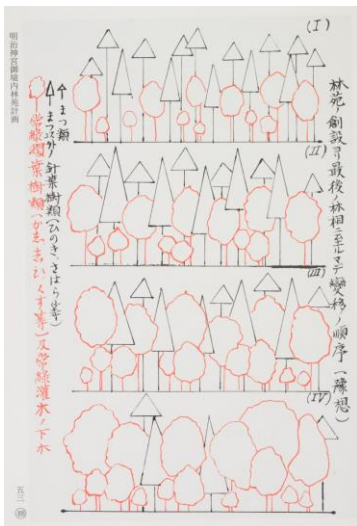 林苑ノ創設ヨリ最後ノ林相ニ至ルマデ變移ノ順序(豫想)
(I)
(II)
(III)
(IV)
まつ類
まつ以外ノ針葉樹類(ひのき、さはら等)
常緑濶葉樹類(かし、しひ、くす等)及常緑灌木ノ下木
明治神宮御境内林苑計画
五三